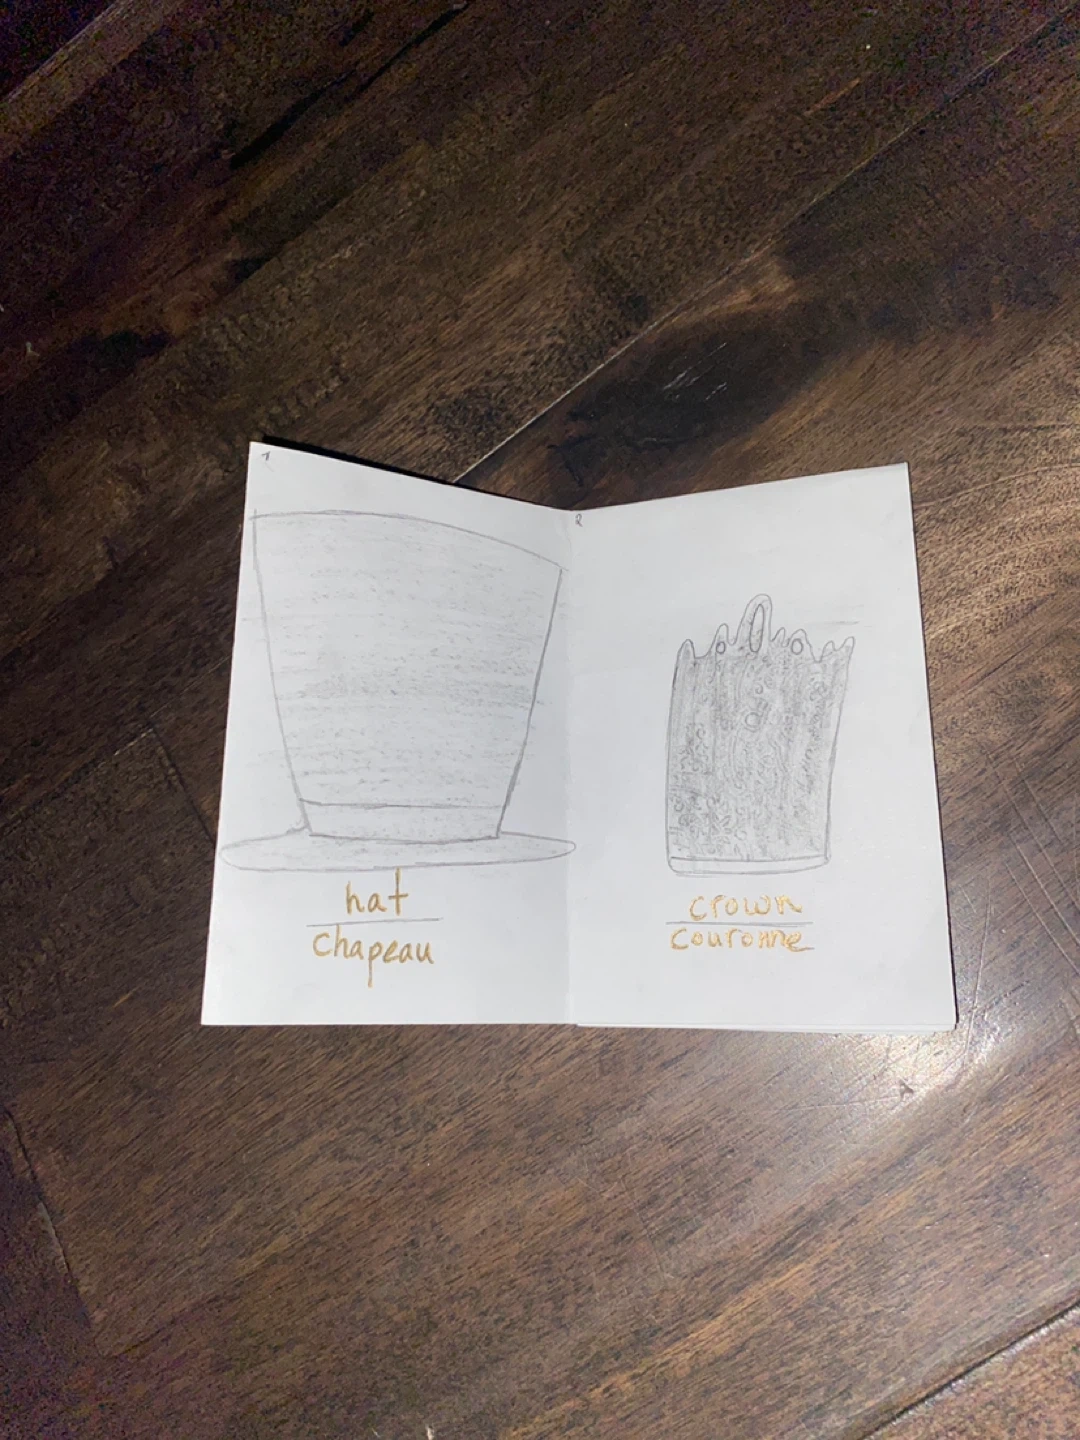 1
hat
chapeau
2
crown
couronne